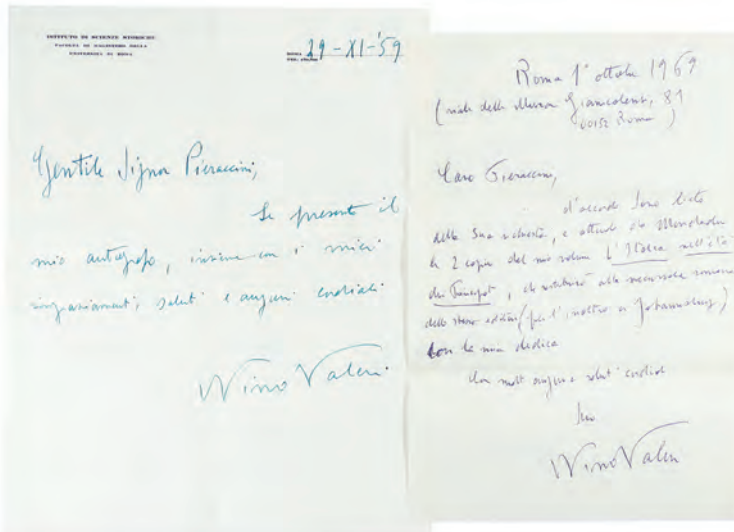 ISTITUTO DI SCIENZE STORICHE
FACOLTÀ DI MAGISTERO DELLA
UNIVERSITÀ DI ROMA
ROMA 29-XI-'59
Gentile Signor Pieraccini,
Le presento il
mio autografo, insieme con i miei
ringraziamenti, saluti e auguri cordiali
Nino Valeri
Roma 1° ottobre 1969
(viale delle Mura Gianicolensi, 81
00152 Roma)
Caro Pieraccini,
d'accordo. Sono lieto
della Sua richiesta, e attendo da Mondadori
le 2 copie del mio volume L'Italia nell'età
dei Principati, che restituirò alla succursale romana
della stessa editrice (per l'inoltro a Johannesburg)
con la mia dedica
Con molti auguri e saluti cordiali
Suo
Nino Valeri